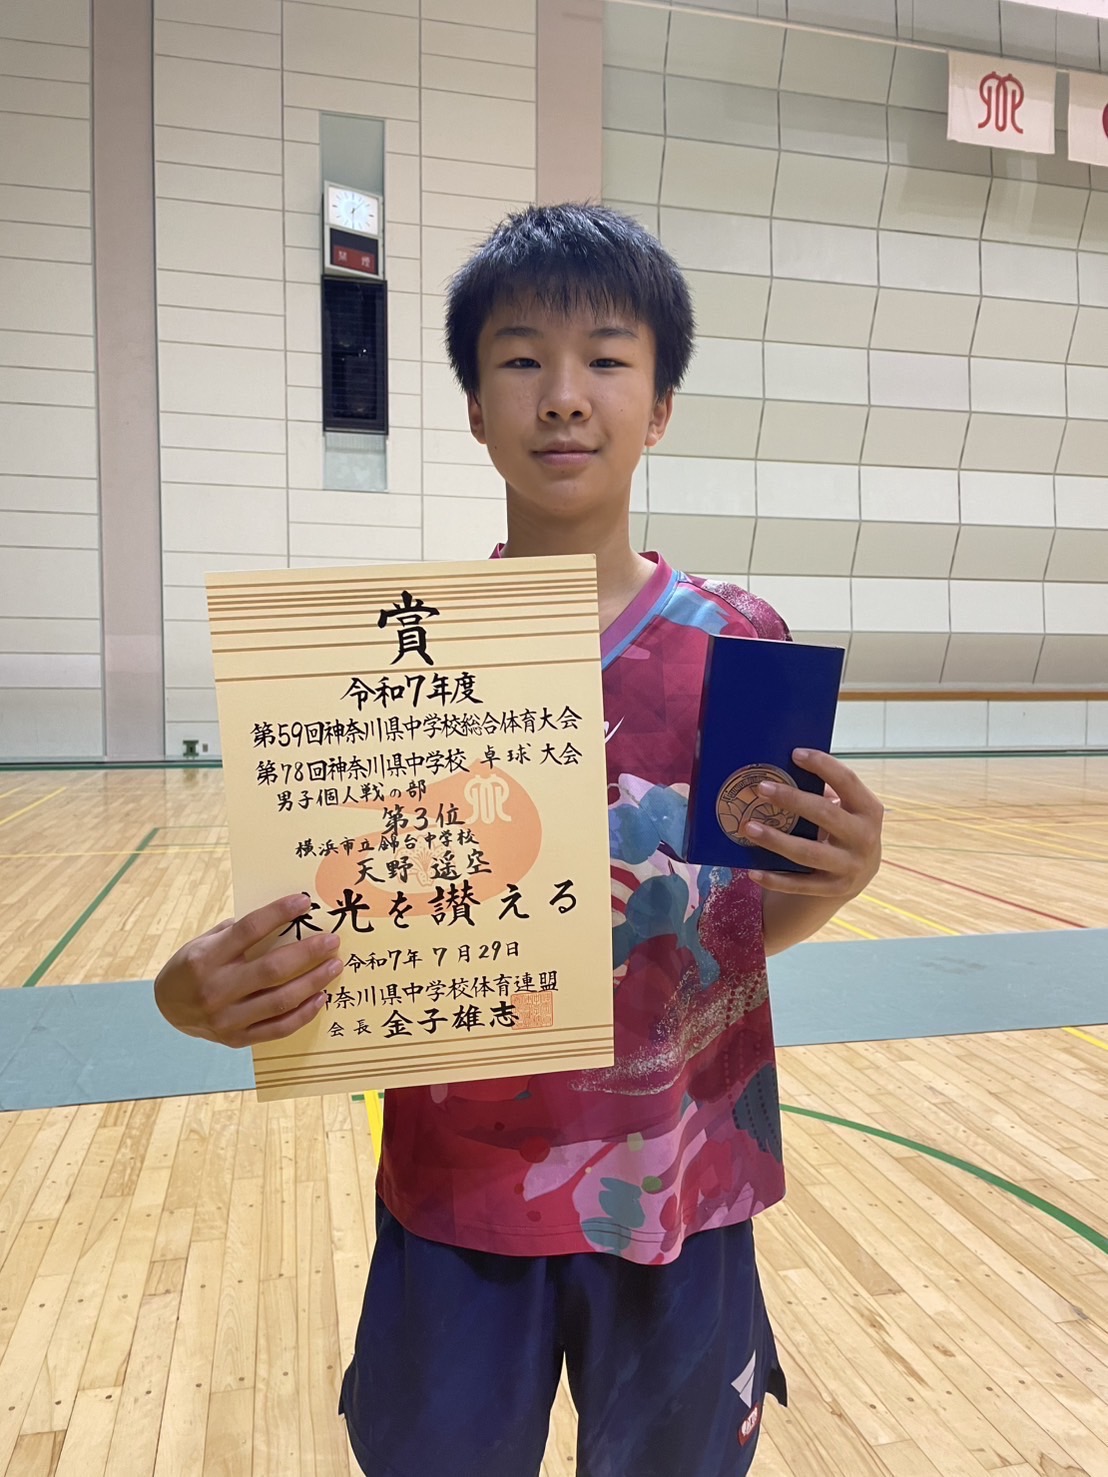 賞
令和7年度
第59回神奈川県中学校総合体育大会
第78回神奈川県中学校 卓球 大会
男子個人戦の部
第3位
横浜市立錦台中学校
天野 遥空
栄光を讃える
令和7年 7月29日
神奈川県中学校体育連盟
会長 金子雄志
禁煙